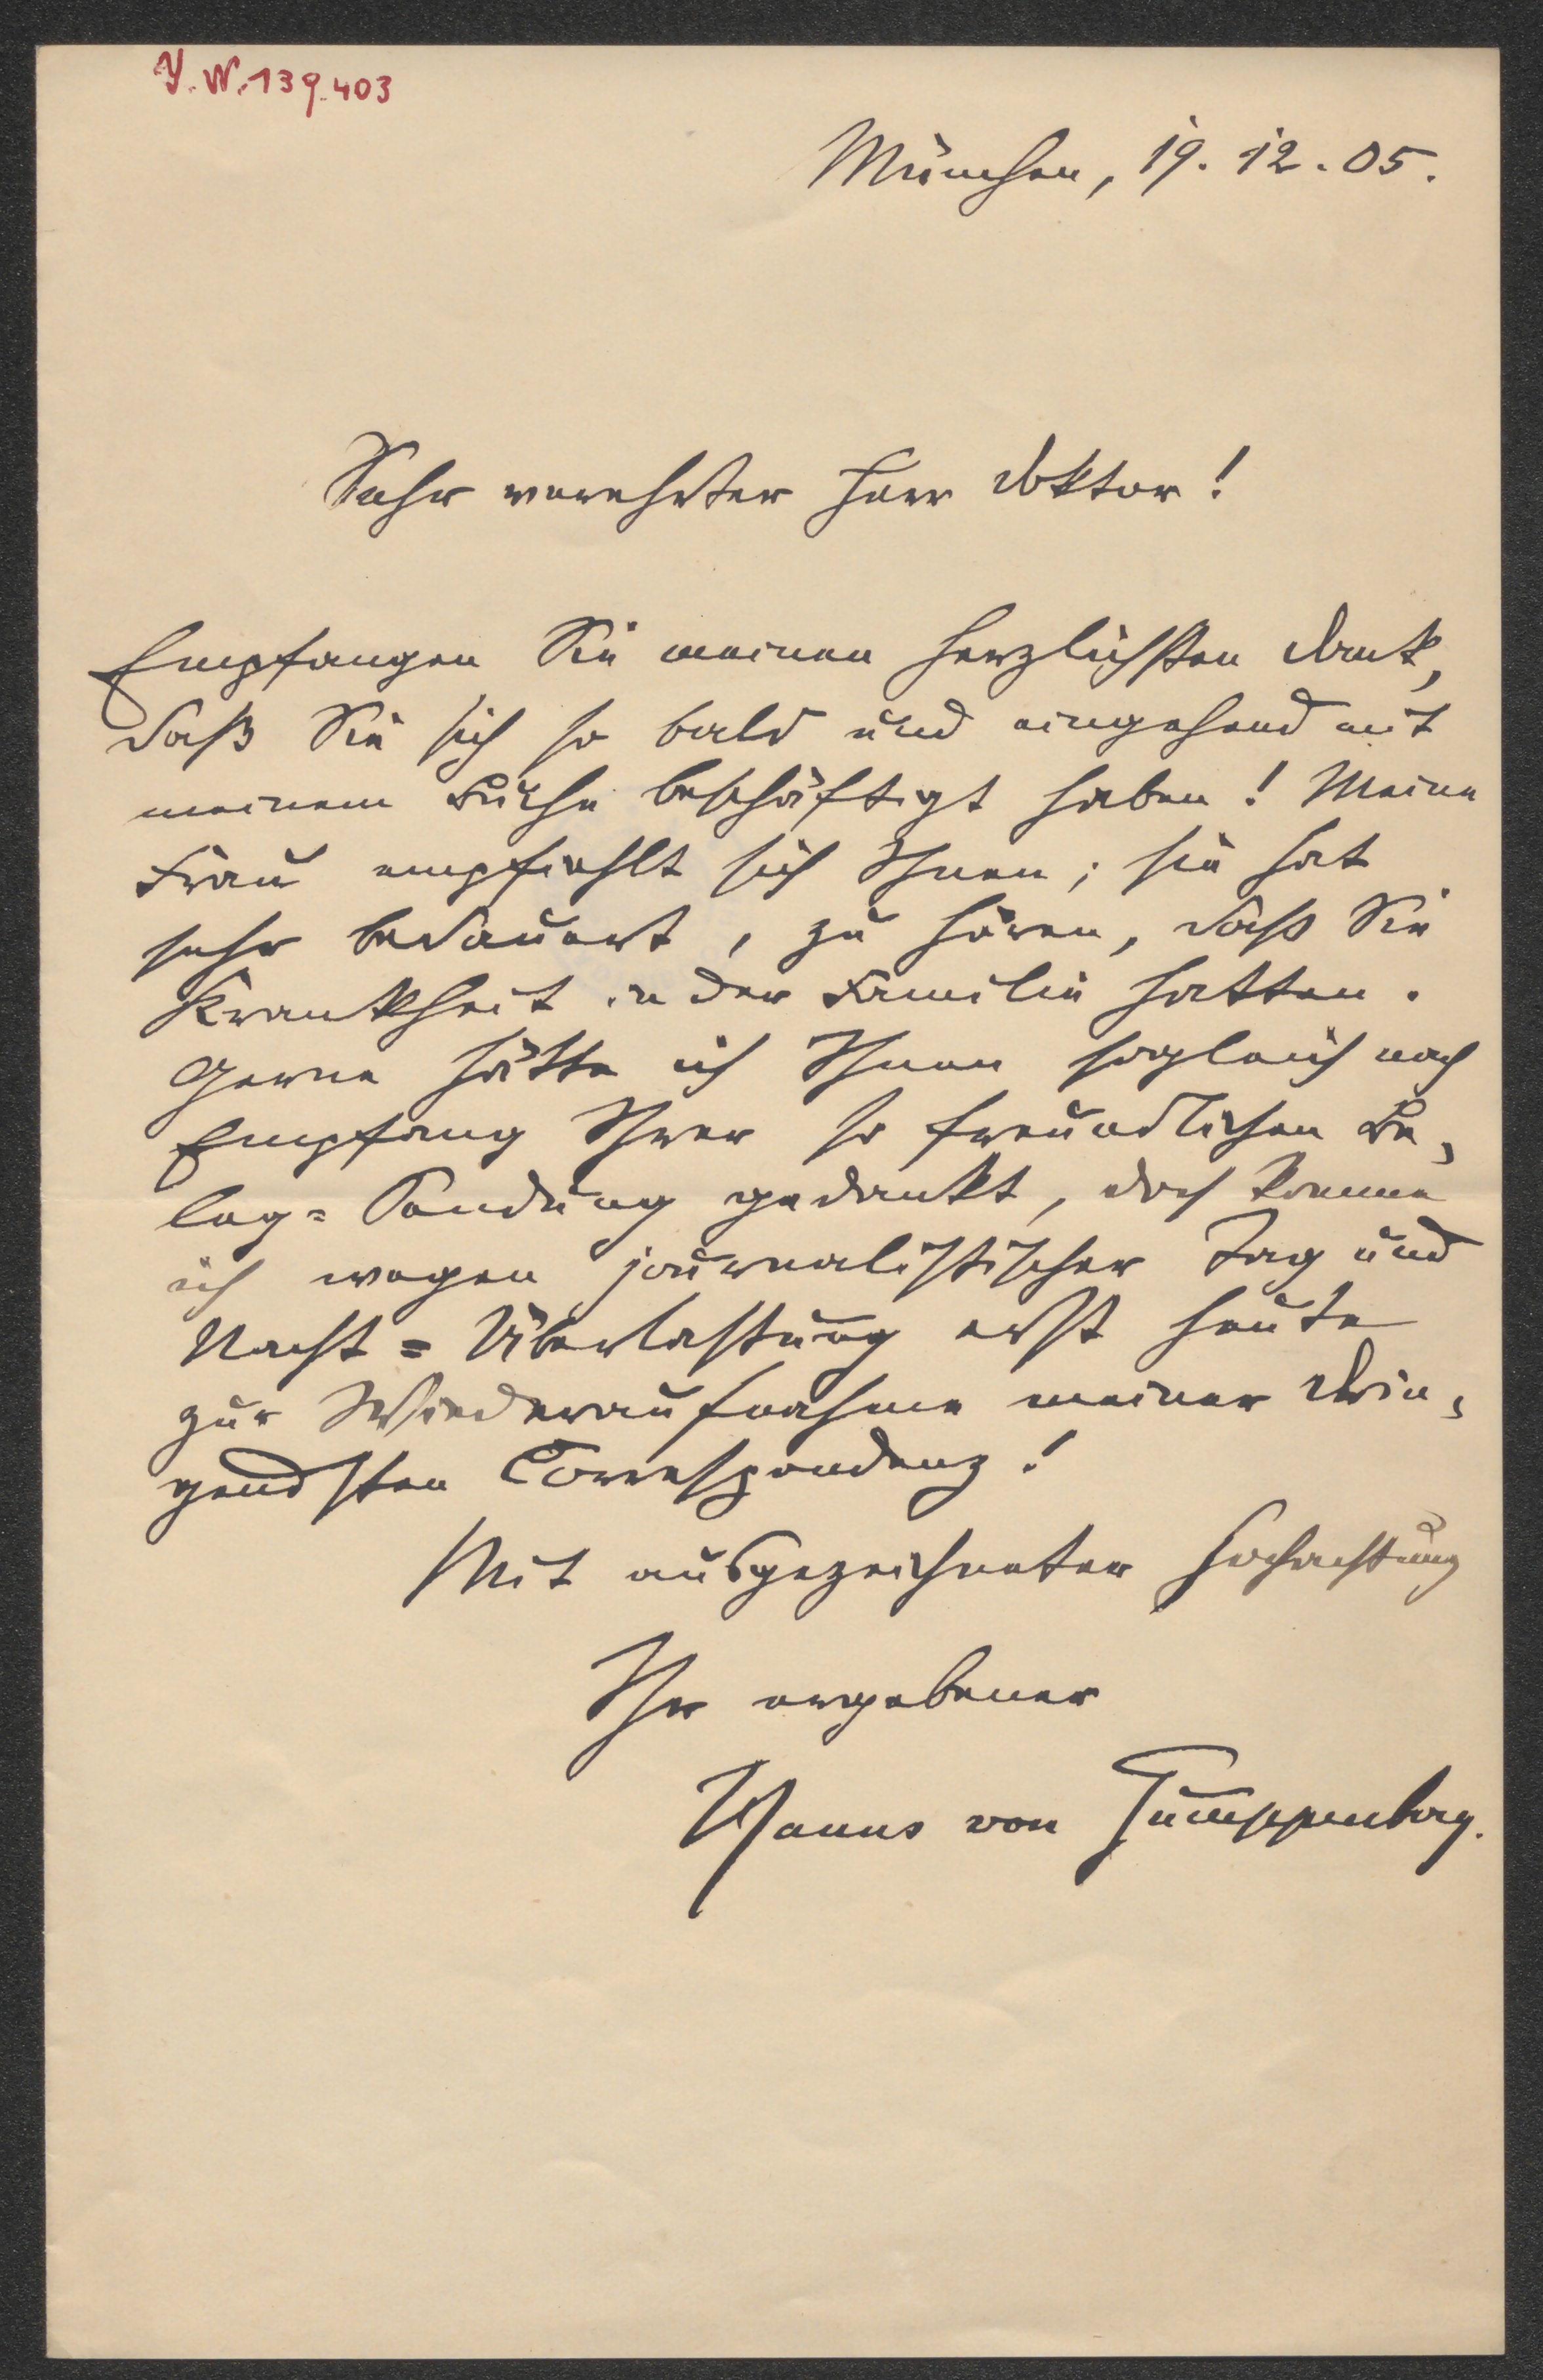 J.N. 139.403
München, 19. 12. 05.
Sehr verehrter Herr Doktor!
Empfangen Sie meinen herzlichsten Dank,
daß Sie sich so bald und eingehend mit
meinem Buche beschäftigt haben! Meine
Frau empfiehlt sich Ihnen; sie hat
sehr bedauert, zu hören, daß Sie
Krankheit in der Familie hatten.
Gerne hätte ich Ihnen sogleich nach
Empfang Ihrer so freundlichen Be-
leg=Sendung gedankt, doch komme
ich wegen journalistischer Tag und
Nacht=Überlastung erst heute
zur Wiederaufnahme meiner drin-
gendsten Correspondenz!
Mit ausgezeichneter Hochachtung
Ihr ergebener
Hanns von Gumppenberg.